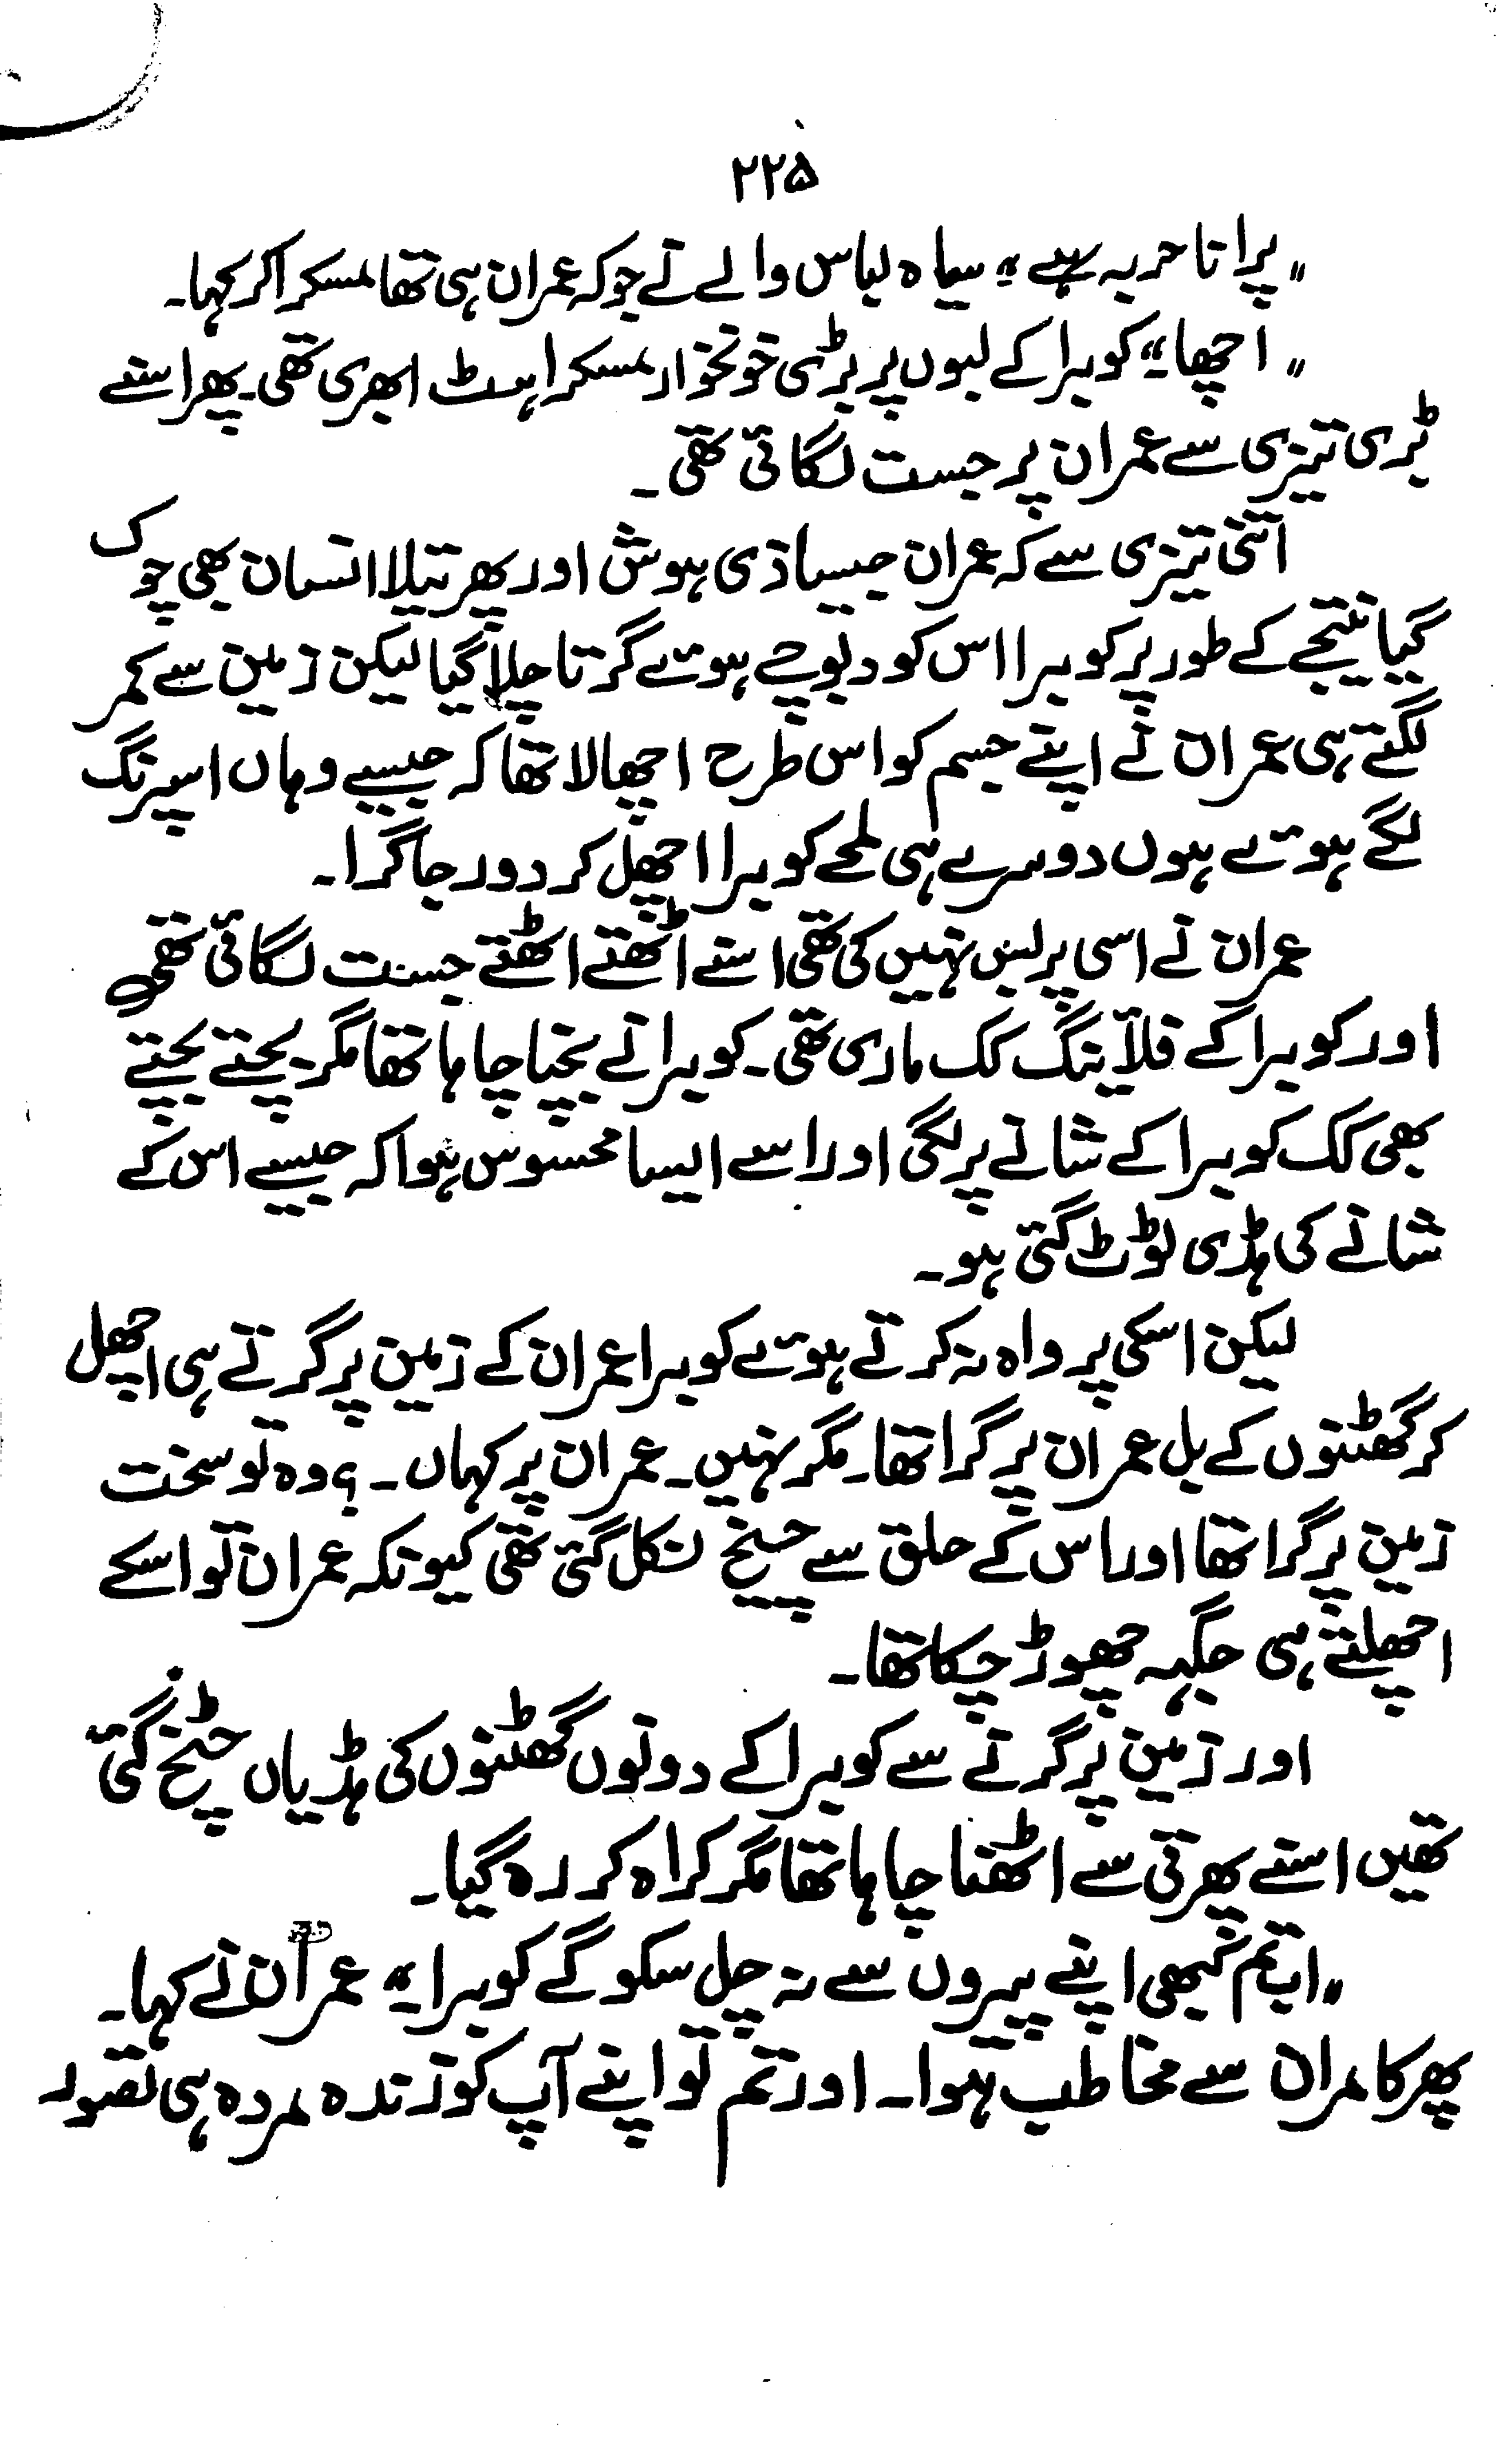 ۲۲۵
"پرانا حربہ ہے" سیاہ لباس والے نے جو کہ عمران ہی تھا مسکرا کر کہا۔
"اچھا۔" کوبرا کے لبوں پر بڑی خونخوار مسکراہٹ ابھری تھی۔ پھر اسنے
بڑی تیزی سے عمران پر جست لگائی تھی۔
اتنی تیزی سے کہ عمران جیسا ذی ہوش اور پھرتیلا انسان بھی چوک
گیا نتیجے کے طور پر کوبرا اس کو دبوچے ہوئے گرتا چلا گیا لیکن زمین سے کمر
لگتے ہی عمران نے اپنے جسم کو اس طرح اچھالا تھا کہ جیسے وہاں اسپرنگ
لگے ہوئے ہوں دوسرے ہی لمحے کوبرا اچھل کر دور جا گرا۔
عمران نے اسی پر بس نہیں کی تھی اسنے اٹھتے اٹھتے جست لگائی تھی
اور کوبرا کے فلائنگ کک ماری تھی۔ کوبرا نے بچنا چاہا تھا مگر۔ بچتے بچتے
بھی کک کوبرا کے شانے پر لگی اور اسے ایسا محسوس ہوا کہ جیسے اس کے
شانے کی ہڈی ٹوٹ گئی ہو۔
لیکن اسکی پرواہ نہ کرتے ہوئے کوبرا عمران کے زمین پر گرتے ہی اچھل
کر گھٹنوں کے بل عمران پر گرا تھا۔ مگر نہیں۔ عمران پر کہاں۔؟ وہ تو سخت
زمین پر گرا تھا اور اس کے حلق سے چیخ نکل گئی تھی کیونکہ عمران تو اسکے
اچھلتے ہی جگہہ چھوڑ چکا تھا۔
اور زمین پر گرنے سے کوبرا کے دونوں گھٹنوں کی ہڈیاں چٹخ گئی
تھیں اسنے پھرتی سے اٹھنا چاہا تھا مگر کراہ کر رہ گیا۔
"اب تم کبھی اپنے پیروں سے نہ چل سکو گے کوبرا۔" عمران نے کہا۔
پھر کامران سے مخاطب ہوا۔ اور تم تو اپنے آپ کو زندہ مردہ ہی تصور